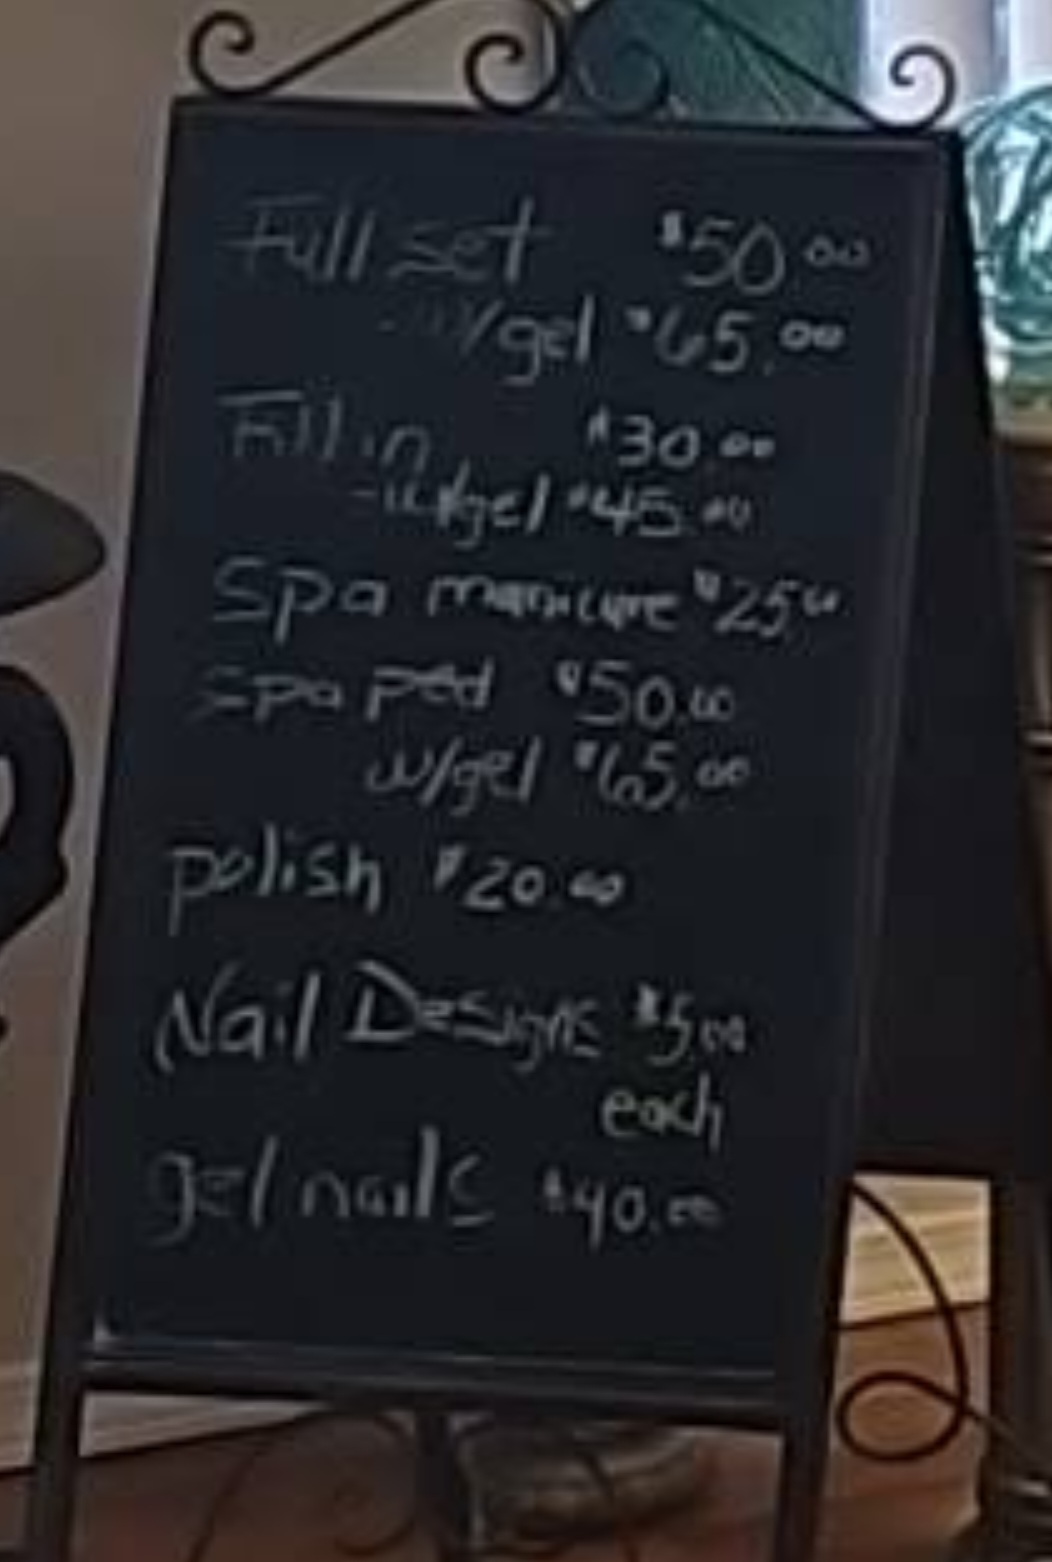 Full set $50.00
- w/gel $65.00
Fill in $30.00
- w/gel $45.00
Spa manicure $25.00
Spa ped $50.00
w/gel $65.00
polish $20.00
Nail Designs $5.00
each
gel nails $40.00